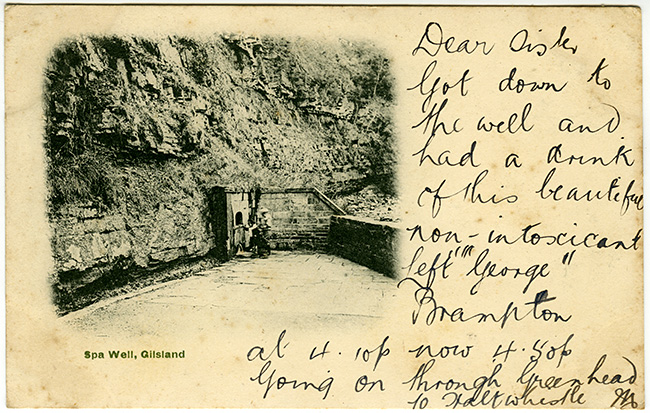 Dear Sister
Got down to
the well and
had a drink
of this beautiful
non-intoxicant
Left "George"
Brampton
at 4.10p now 4.40p
Going on through Greenhead
to Haltwhistle
Spa Well, Gilsland